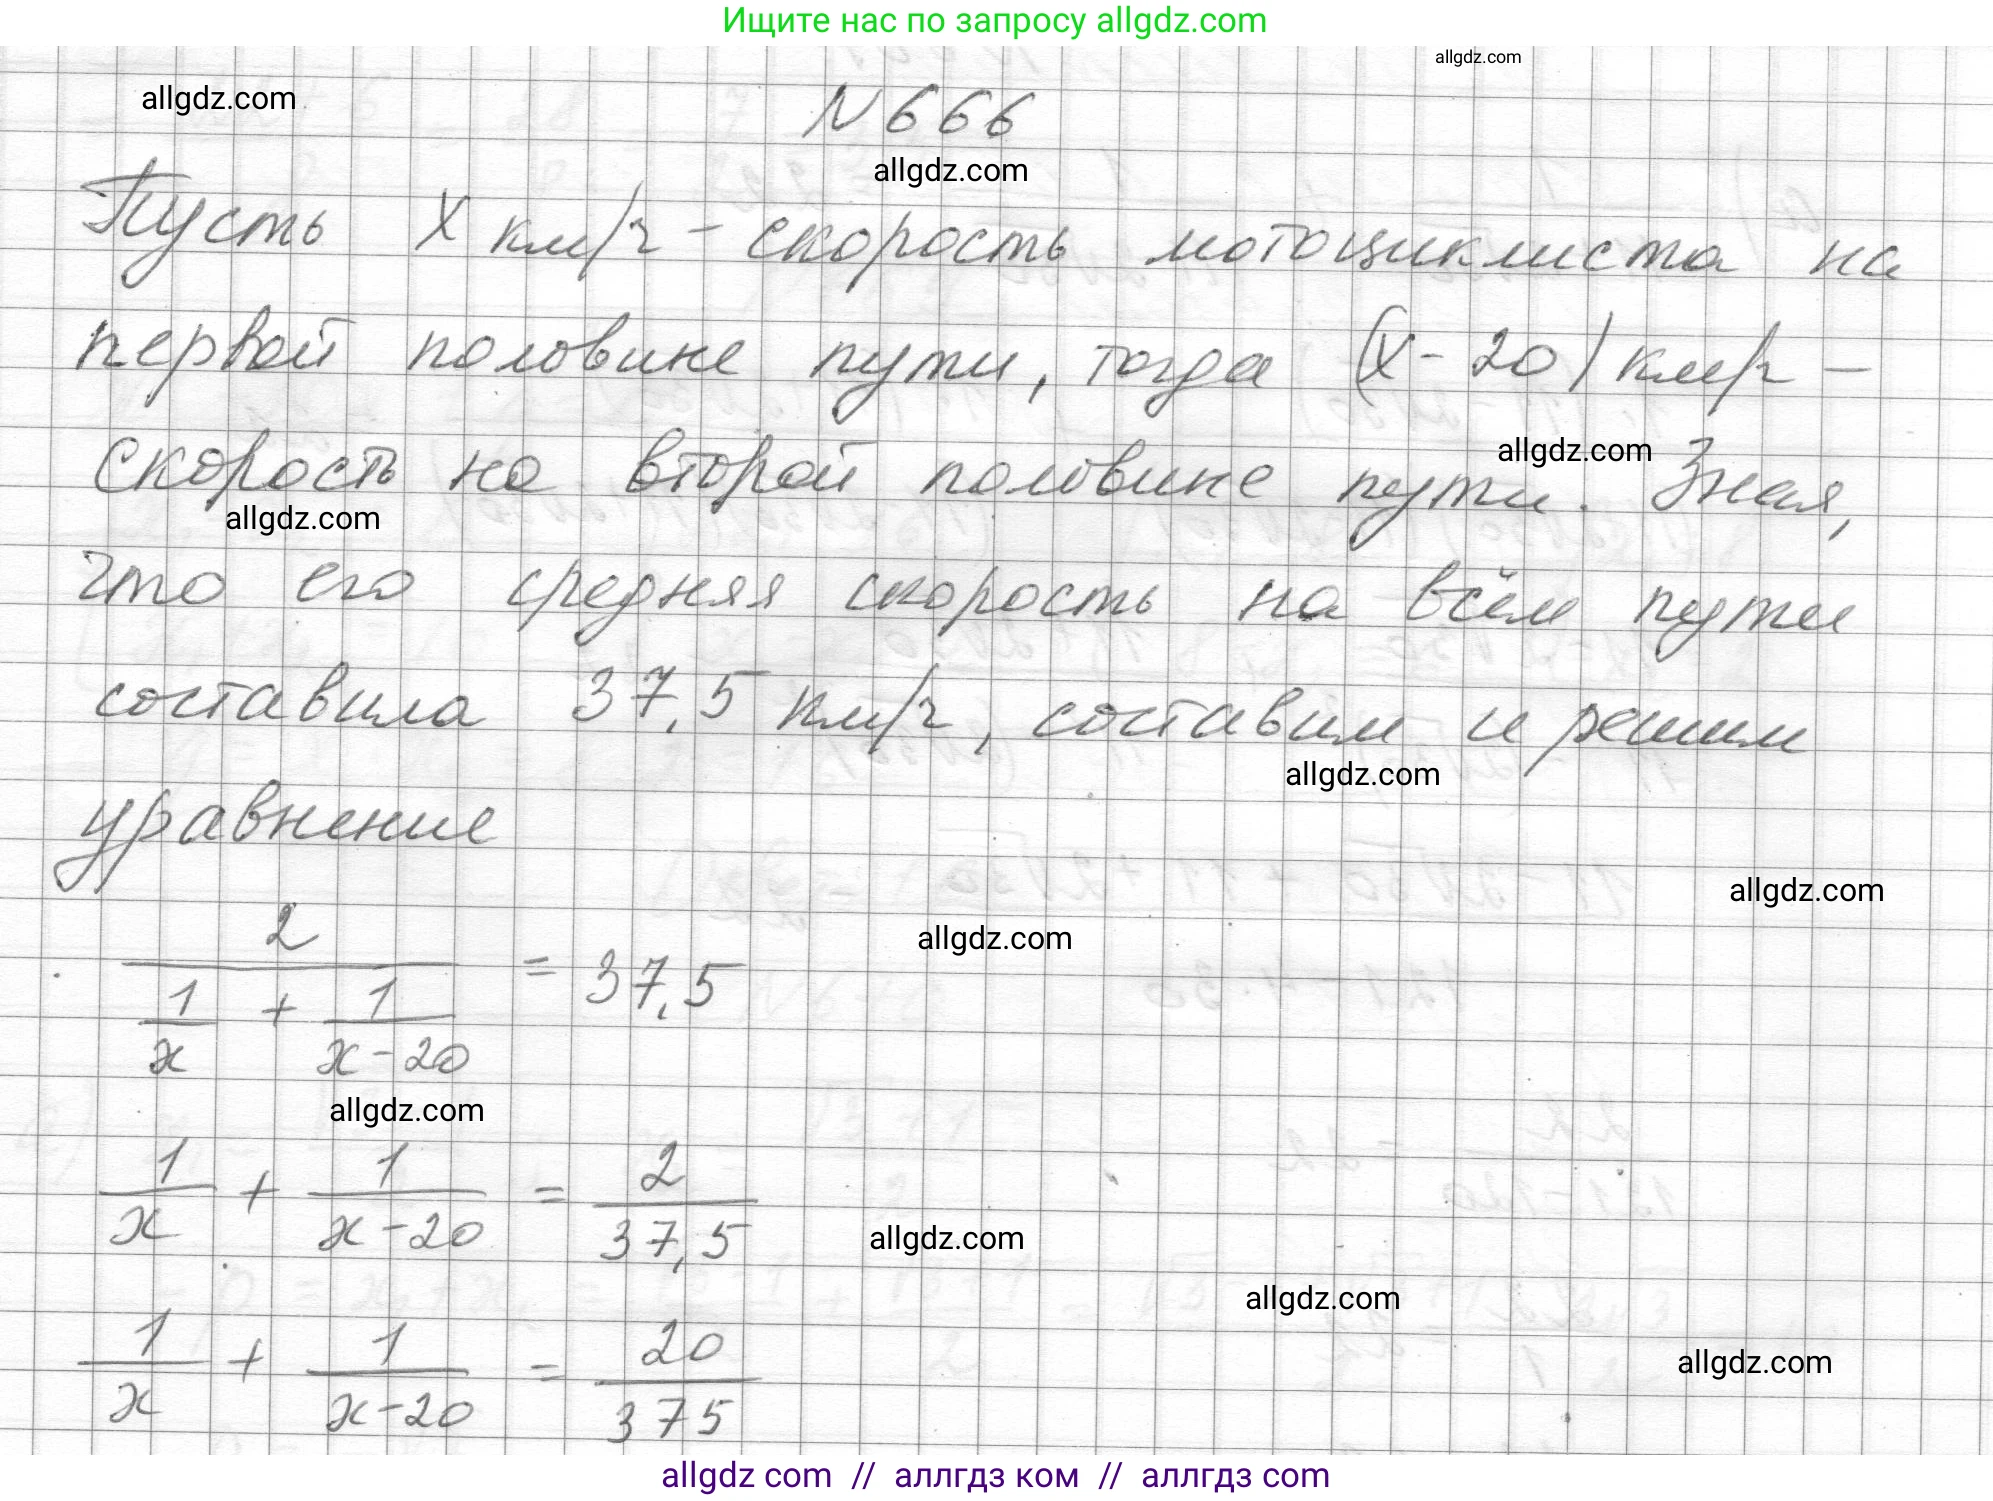 Ищите нас по запросу allgdz.com
allgdz.com
allgdz.com
N 666
allgdz.com
Пусть x км/ч - скорость мотоциклиста на
первой половине пути, тогда (x - 20) км/ч -
allgdz.com
скорость на второй половине пути. Зная,
allgdz.com
что его средняя скорость на всём пути
составила 37,5 км/ч, составим и решим
allgdz.com
уравнение
allgdz.com
allgdz.com
2 / (1/x + 1/(x-20)) = 37,5
allgdz.com
1/x + 1/(x-20) = 2/37,5
allgdz.com
allgdz.com
1/x + 1/(x-20) = 20/375
allgdz.com
allgdz com // аллгдз ком // аллгдз com